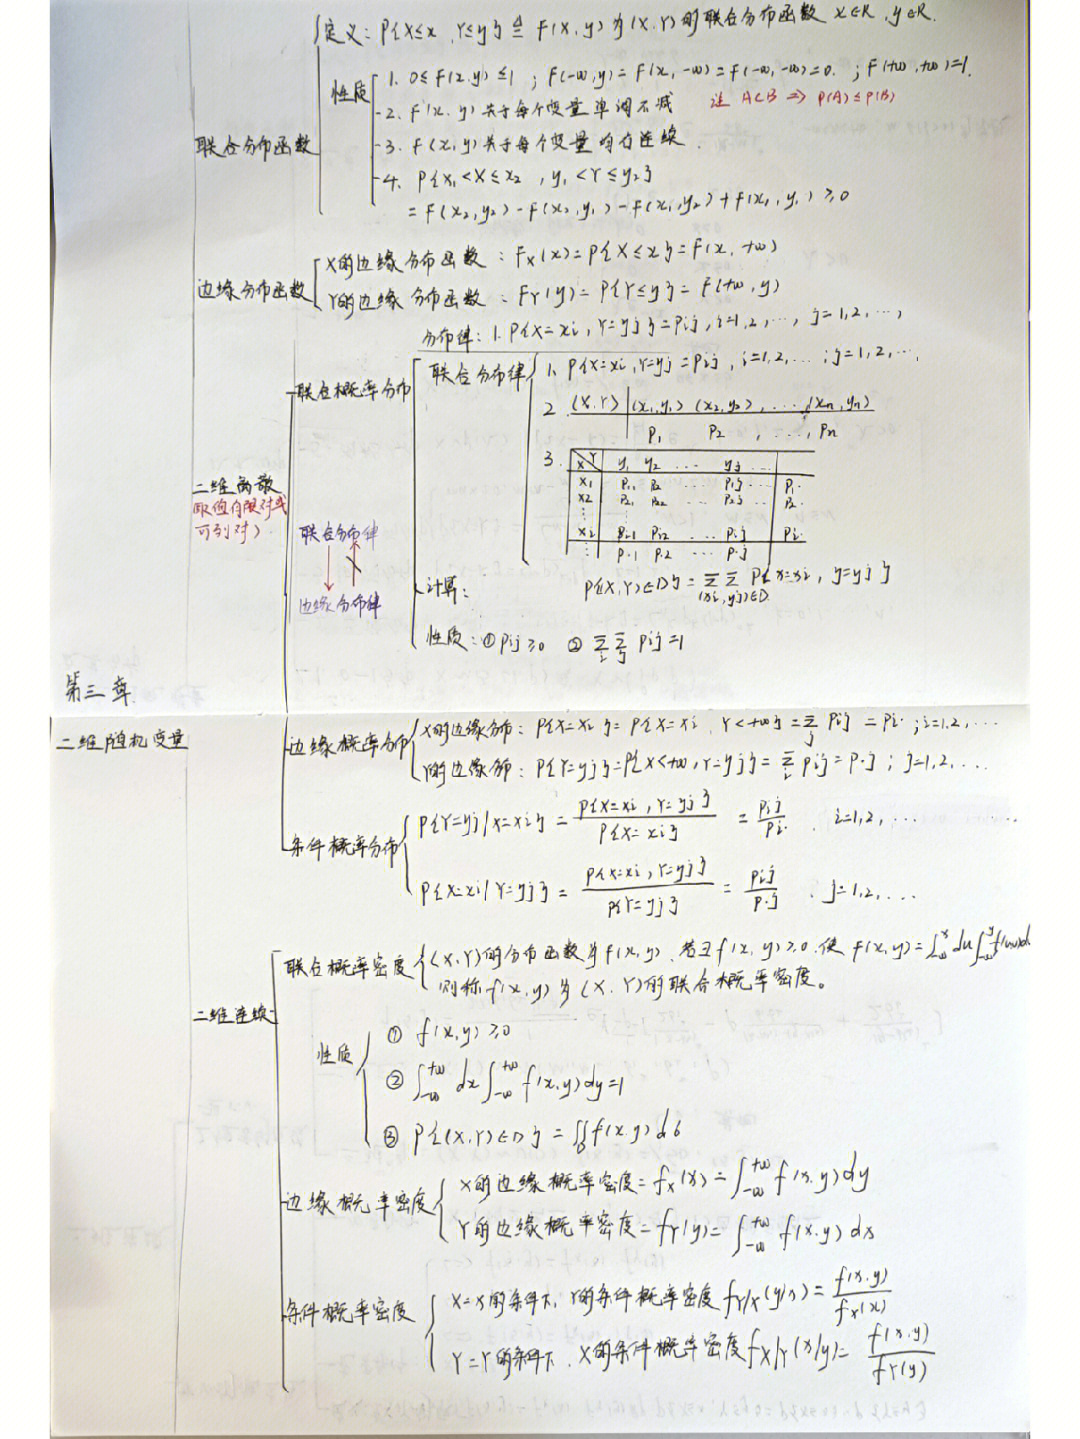 定义：P{X≤x，Y≤y}≜F(x,y)为(X,Y)的联合分布函数 x∈R，y∈R.
联合分布函数
性质
1. 0≤F(x,y)≤1；F(-∞,y)=F(x,-∞)=F(-∞,-∞)=0；F(+∞,+∞)=1.
2. F(x,y)关于每个变量单调不减
注 A⊂B ⇒ P(A)≤P(B)
3. F(x,y)关于每个变量均右连续.
4. P{x₁<X≤x₂，y₁<Y≤y₂}
=F(x₂,y₂)-F(x₂,y₁)-F(x₁,y₂)+F(x₁,y₁)≥0
边缘分布函数
X的边缘分布函数：Fx(x)=P{X≤x}=F(x,+∞)
Y的边缘分布函数：FY(y)=P{Y≤y}=F(+∞,y)
分布律：1. P{X=xi，Y=yj}=Pij，i=1,2,…，j=1,2,…，
联合概率分布
联合分布律
1. P{X=xi,Y=yj=Pij，i=1,2,…；j=1,2,…，
2. (X,Y) (x₁,y₁) (x₂,y₂)，…，(xn,yn)
P₁ P₂，…，Pn
3. X Y y₁ y₂ … yj …
x₁ P₁₁ P₁₂ … P₁j … P₁.
x₂ P₂₁ P₂₂ … P₂j … P₂.
⋮ ⋮
xi Pi1 Pi2 … Pij Pi.
⋮ P.1 P.2 … P.j
二维离散
取值有限对或
可列对）
联合分布律
边缘分布律
计算：
P{(X,Y)∈D}=ΣΣ P{x=xi，y=yj}
(xi,yj)∈D
性质：①Pij≥0 ②Σi Σj Pij=1
第三章
二维随机变量
边缘概率分布
X的边缘分布：P{X=xi}=P{X=xi，Y<+∞}=Σj Pij=Pi.；i=1,2,…
Y的边缘分布：P{Y=yj}=P{X<+∞，Y=yj}=Σi Pij=P.j；j=1,2,…
条件概率分布
P{Y=yj|X=xi}=P{X=xi，Y=yj}/P{X=xi}=Pij/Pi.，i=1,2,… …
P{X=xi|Y=yj}=P{X=xi，Y=yj}/P{Y=yj}=Pij/P.j，j=1,2,…
二维连续
联合概率密度
(X,Y)的分布函数为F(x,y)，若∃f(x,y)≥0，使F(x,y)=∫-∞^x du∫-∞^y f(u,v)d
则称f(x,y)为(X,Y)的联合概率密度。
性质
①f(x,y)≥0
②∫-∞^+∞ dx∫-∞^+∞ f(x,y)dy=1
③P{(X,Y)∈D}=∬D f(x,y)dσ
边缘概率密度
X的边缘概率密度=fX(x)=∫-∞^+∞ f(x,y)dy
Y的边缘概率密度=fY(y)=∫-∞^+∞ f(x,y)dx
条件概率密度
X=x的条件下，Y的条件概率密度fY|X(y|x)=f(x,y)/fX(x)
Y=Y的条件下，X的条件概率密度fX|Y(x|y)=f(x,y)/fY(y)